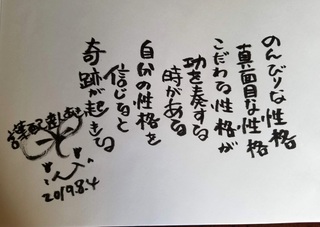 のんびりな性格
真面目な性格
こだわる性格が
功を奏する
時がある
自分の性格を
信じると
奇跡が起きる
2019.8.4